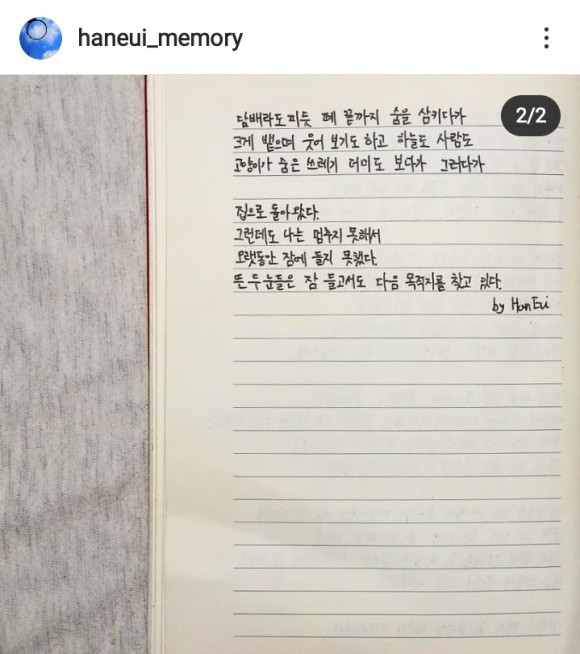 haneui_memory
2/2
담배라도 피듯 폐 끝까지 숨을 삼키다가
크게 뱉으며 웃어 보기도 하고 하늘도 사람도
고양이가 숨은 쓰레기 더미도 보다가 그러다가
집으로 돌아왔다.
그런데도 나는 멈추지 못해서
오랫동안 잠에 들지 못했다.
뜬 두 눈들은 잠 들고서도 다음 목적지를 찾고 있다.
by HanEui